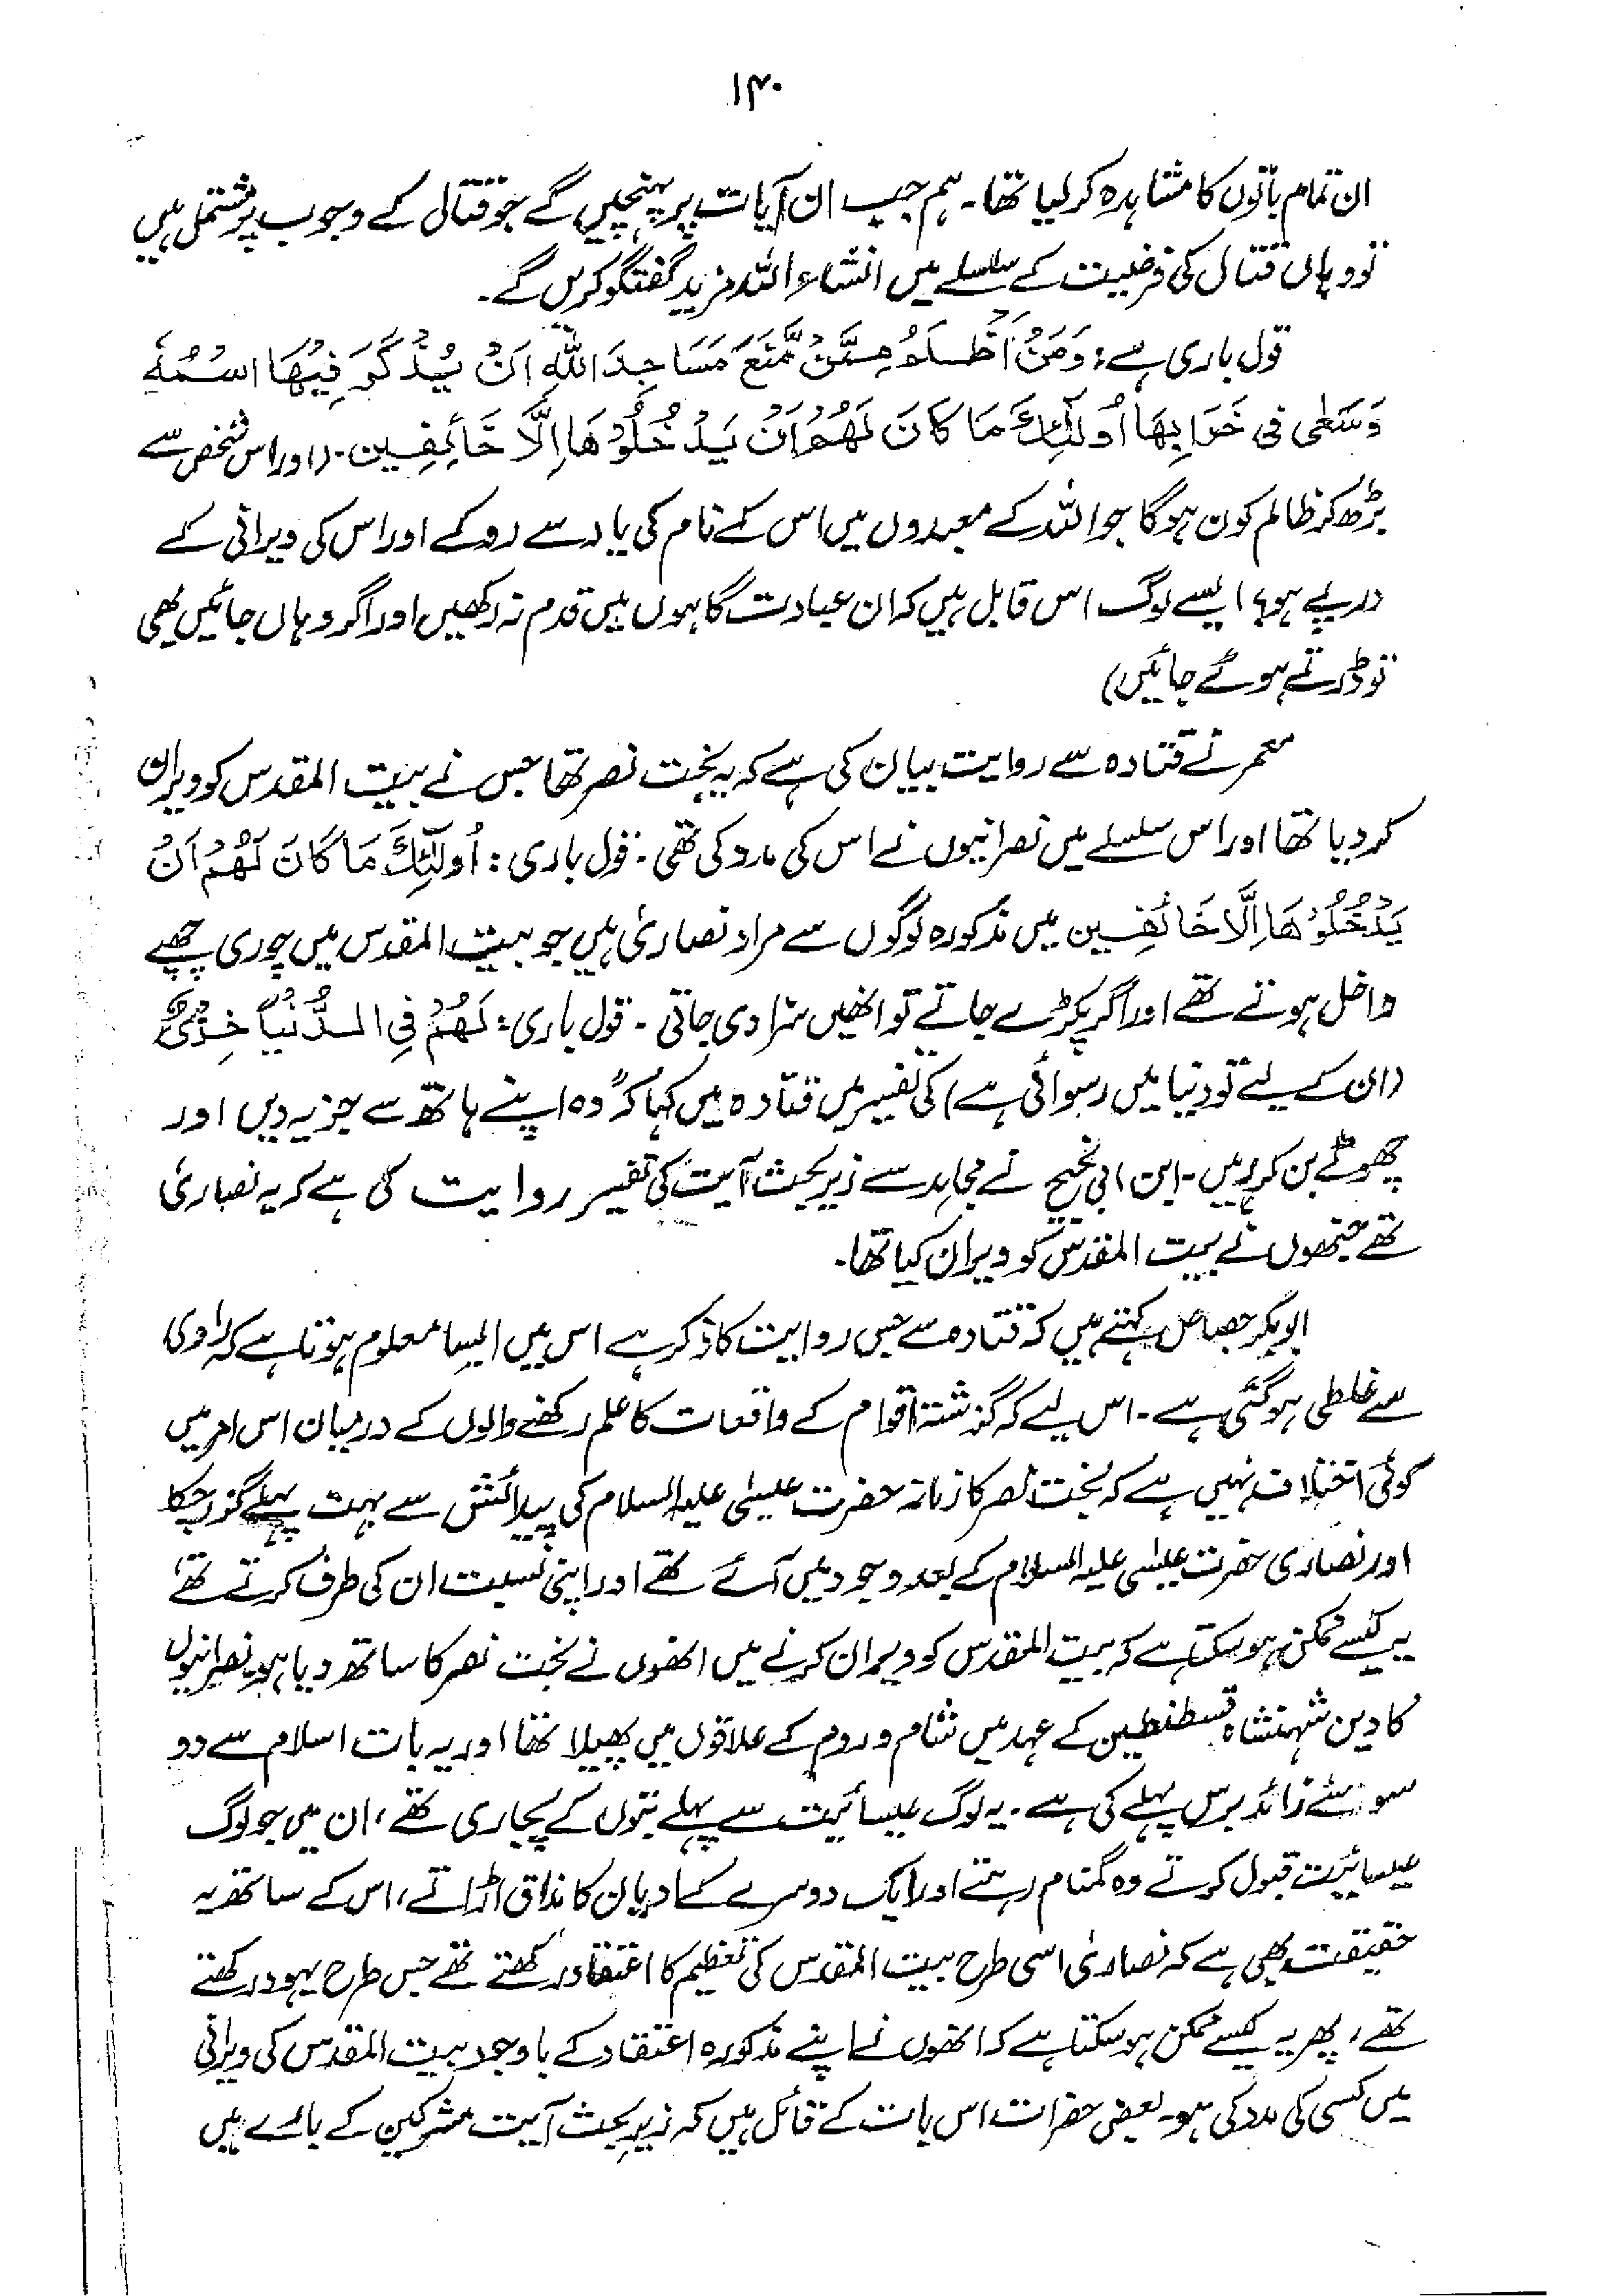 ۱۴۰
ان تمام باتوں کا مشاہدہ کر لیا تھا۔ ہم جب ان آیات پر پہنچیں گے جو قتال کے وجوب پر مشتمل ہیں
تو وہاں قتال کی فرضیت کے سلسلے میں انشاء اللہ مزید گفتگو کریں گے۔
قول باری ہے: وَمَنْ اَظْلَمُ مِمَّنْ مَّنَعَ مَسَاجِدَ اللّٰهِ اَنْ يُّذْكَرَ فِيْهَا اسْمُهٗ
وَسَعٰى فِى خَرَابِهَا اُولٰٓئِكَ مَا كَانَ لَهُمْ اَنْ يَدْخُلُوْهَا اِلَّا خَائِفِين۔ (اور اس شخص سے
بڑھ کر ظالم کون ہوگا جو اللہ کے معبدوں میں اس کے نام کی یاد سے روکے اور اس کی ویرانی کے
درپے ہو، ایسے لوگ اس قابل ہیں کہ ان عبادت گاہوں میں قدم نہ رکھیں اور اگر وہاں جائیں بھی
تو ڈرتے ہوئے جائیں)
معمر نے قتادہ سے روایت بیان کی ہے کہ یہ بخت نصر تھا جس نے بیت المقدس کو ویران
کر دیا تھا اور اس سلسلے میں نصرانیوں نے اس کی مدد کی تھی۔ قول باری: اُولٰٓئِكَ مَا كَانَ لَهُمْ اَنْ
يَدْخُلُوْهَا اِلَّا خَائِفِين میں مذکورہ لوگوں سے مراد نصاریٰ ہیں جو بیت المقدس میں چوری چھپے
داخل ہوتے تھے اور اگر پکڑے جاتے تو انھیں سزا دی جاتی۔ قول باری: لَهُمْ فِى الدُّنْيَا خِزْىٌ
(ان کے لیے تو دنیا میں رسوائی ہے) کی تفسیر میں قتادہ میں کہا کہ "وہ اپنے ہاتھ سے جزیہ دیں اور
چھوٹے بن کر رہیں۔ ابن ابی نجیح نے مجاہد سے زیر بحث آیت کی تفسیر روایت کی ہے کہ یہ نصاریٰ
تھے جنھوں نے بیت المقدس کو ویران کیا تھا۔
ابوبکر جصاص کہتے ہیں کہ قتادہ سے جس روایت کا ذکر ہے اس میں ایسا معلوم ہوتا ہے کہ راوی
سے غلطی ہو گئی ہے۔ اس لیے کہ گذشتہ اقوام کے واقعات کا علم رکھنے والوں کے درمیان اس امر میں
کوئی اختلاف نہیں ہے کہ بخت نصر کا زمانہ حضرت عیسٰی علیہ السلام کی پیدائش سے بہت پہلے گزر چکا
اور نصاریٰ حضرت عیسٰی علیہ السلام کے بعد وجود میں آئے تھے اور اپنی نسبت ان کی طرف کرتے تھے
یہ کیسے ممکن ہو سکتا ہے کہ بیت المقدس کو ویران کرنے میں انھوں نے بخت نصر کا ساتھ دیا ہو۔ نصرانیوں
کا دین شہنشاہ قسطنطین کے عہد میں شام و روم کے علاقوں میں پھیلا تھا اور یہ بات اسلام سے دو
سو سے زائد برس پہلے کی ہے۔ یہ لوگ عیسائیت سے پہلے بتوں کے پجاری تھے، ان میں جو لوگ
عیسائیت قبول کرتے وہ گمنام رہتے اور ایک دوسرے کے ادیان کا مذاق اڑاتے، اس کے ساتھ یہ
حقیقت بھی ہے کہ نصاریٰ اسی طرح بیت المقدس کی تعظیم کا اعتقاد رکھتے تھے جس طرح یہود رکھتے
تھے، پھر یہ کیسے ممکن ہو سکتا ہے کہ انھوں نے اپنے مذکورہ اعتقاد کے باوجود بیت المقدس کی ویرانی
میں کسی کی مدد کی ہو۔ بعض حضرات اس بات کے قائل ہیں کہ زیر بحث آیت مشرکین کے بارے میں